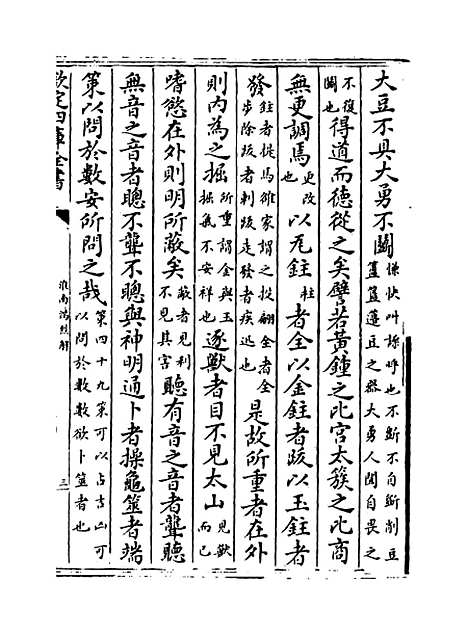 大豆不具大勇不鬭慊快叫譟呼也不斲不自斲削豆簠簋籩豆之器大勇人聞自畏之
不復鬭也得道而德從之矣譬若黃鍾之比宮太簇之比商
無更調焉更改也以瓦鉒柱者全以金鉒者跋以玉鉒者
發鉒者提馬雒家謂之投翩全者全步除跋者剌跋走發者疾迅也是故所重者在外
則内為之掘所重謂金與玉掘氣不安祥也逐獸者目不見太山見獸而已
嗜慾在外則明所蔽矣蔽者見利不見其害聽有音之音者聾聽
無音之音者聰不聾不聰與神明通卜者操龜筮者端
策以問於數安所問之哉第四十九策可以占吉凶可以問於數數欲卜筮者也
欽定四庫全書
淮南鴻烈解
三